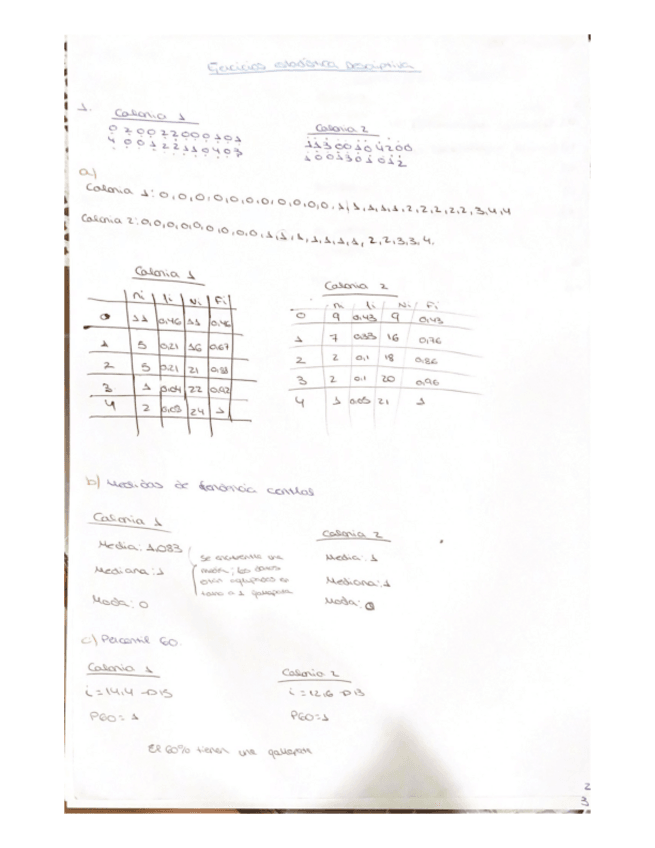 Ejercicios estadística Descriptiva
1. Colonia 1
0 2 0 0 2 2 0 0 0 1 0 1
4 0 0 1 2 2 1 1 0 4 0 3
Colonia 2
1 1 3 0 0 1 0 4 2 0 0
1 0 0 1 3 0 1 0 1 2
a)
Colonia 1: 0,0,0,0,0,0,0,0,0,0,0,1,1,1,1,1,2,2,2,2,2,3,4,4
Colonia 2: 0,0,0,0,0,0,0,0,0,1,1,1,1,1,1,1,2,2,3,3,4.
Colonia 1
ni fi Ni Fi
0 11 0,46 11 0,46
1 5 0,21 16 0,67
2 5 0,21 21 0,88
3 1 0,04 22 0,92
4 2 0,08 24 1
Colonia 2
ni fi Ni Fi
0 9 0,43 9 0,43
1 7 0,33 16 0,76
2 2 0,1 18 0,86
3 2 0,1 20 0,96
4 1 0,05 21 1
b) Medidas de tendencia central
Colonia 1
Media: 1,083
Mediana: 1
Moda: 0
se encuentra una
los datos
están agrupados en
torno a 1 garrapata
Colonia 2
Media: 1
Mediana: 1
Moda: 0
c) Percentil 60.
Colonia 1
i = 14,4 → 15
P60 = 1
Colonia 2
i = 12,6 → 13
P60 = 1
El 60% tienen una garrapata
2
3